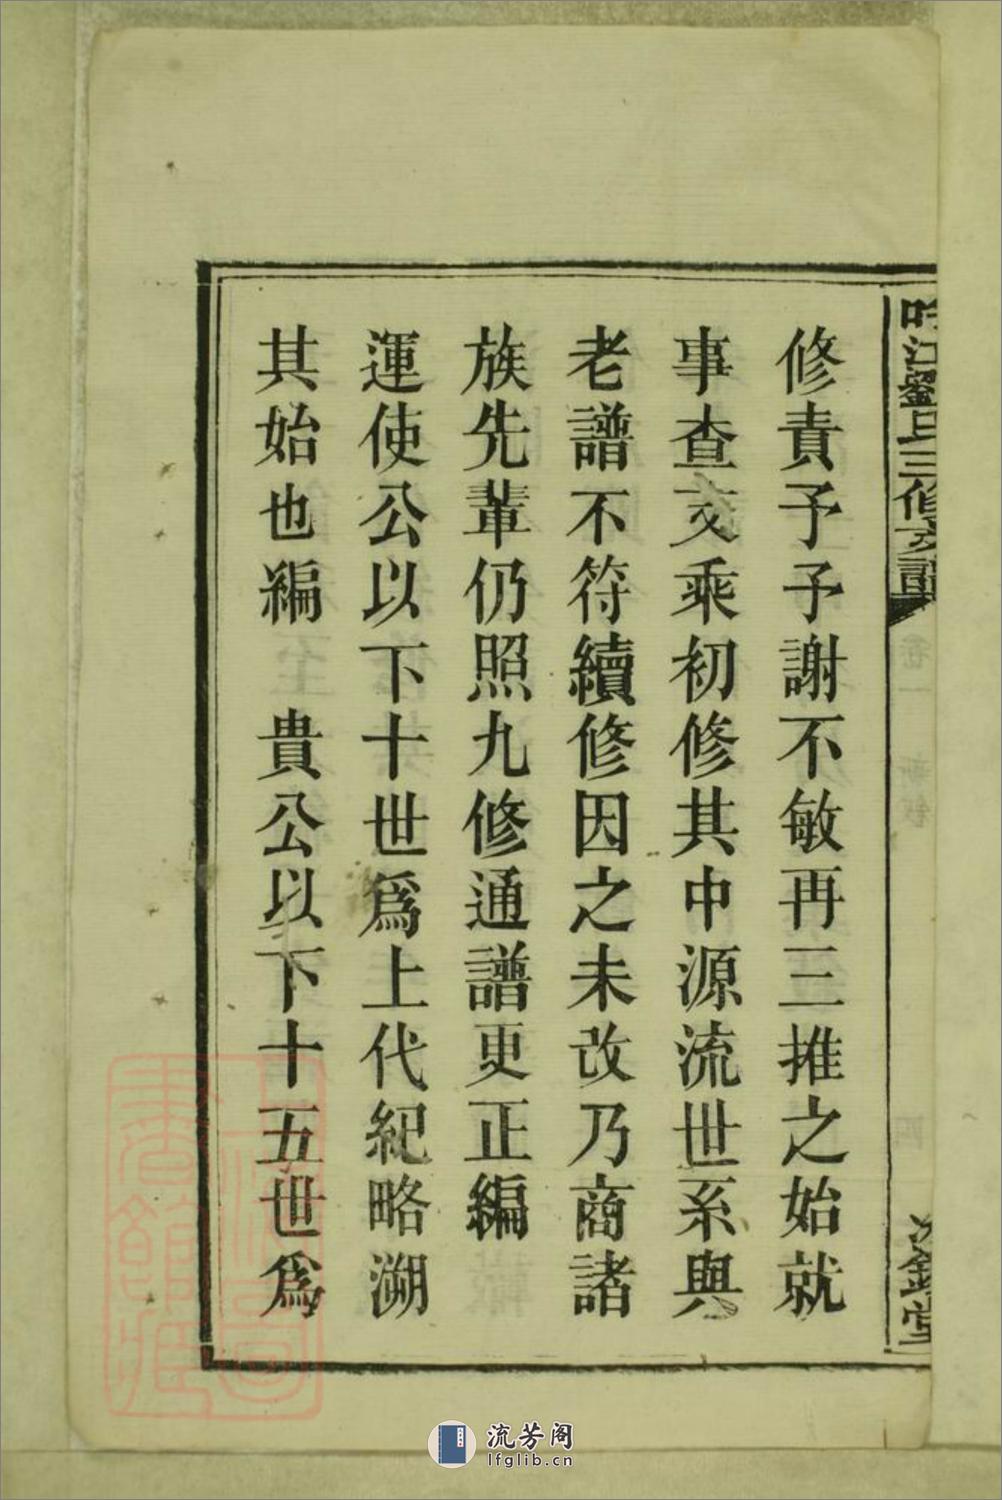 修責予予謝不敏再三推之始就
事查支乘初修其中源流世系與
老譜不符續修因之未改乃商諸
族先輩仍照九修通譜更正編
運使公以下十世爲上代紀略溯
其始也編　貴公以下十五世爲
江劉氏三修支譜
堂
流芳阁
lfglib.cn